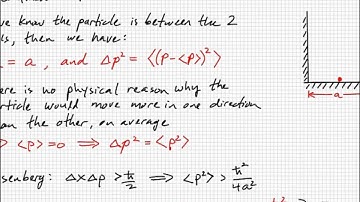 we know the particle is between the 2
then we have:
= a, and Δp² = ⟨(p-⟨p⟩)²⟩
there is no physical reason why the
particle would move more in one direction
than the other, on average
⟨p⟩ = 0 ⟹ Δp² = ⟨p²⟩
ΔxΔp > ħ/2 ⟹ ⟨p²⟩ > ħ²/4a²
a